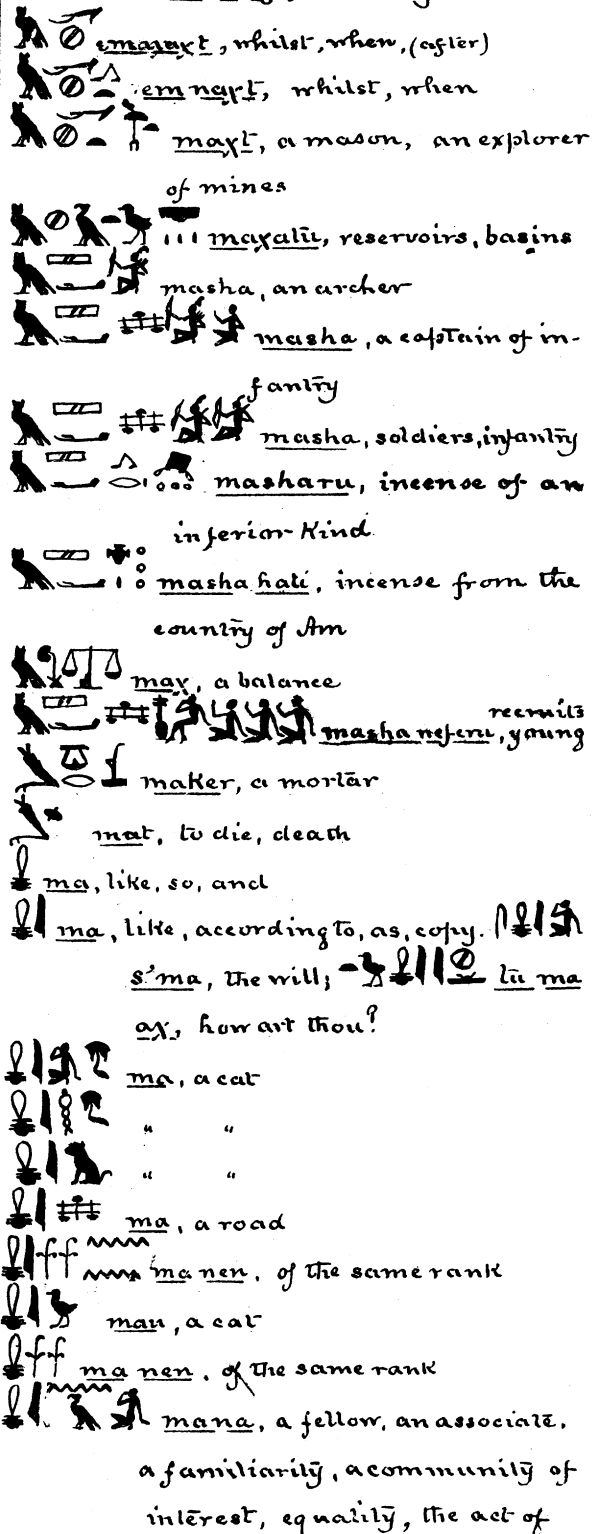 emaxaxt, whilst, when, (after)
em naxt, whilst, when
maxt, a mason, an explorer
of mines
maxatu, reservoirs, basins
masha, an archer
masha, a captain of in-
fantry
masha, soldiers, infantry
masharu, incense of an
inferior kind
masha hati, incense from the
country of Am
max, a balance
recruits
masha neferu, young
maker, a mortar
mat, to die, death
ma, like, so, and
ma, like, according to, as, copy.
s'ma, the will; tu ma
ax, how art thou?
ma, a cat
" "
" "
ma, a road
ma nen, of the same rank
mau, a cat
ma nen, of the same rank
mana, a fellow, an associate,
a familiarity, a community of
interest, equality, the act of